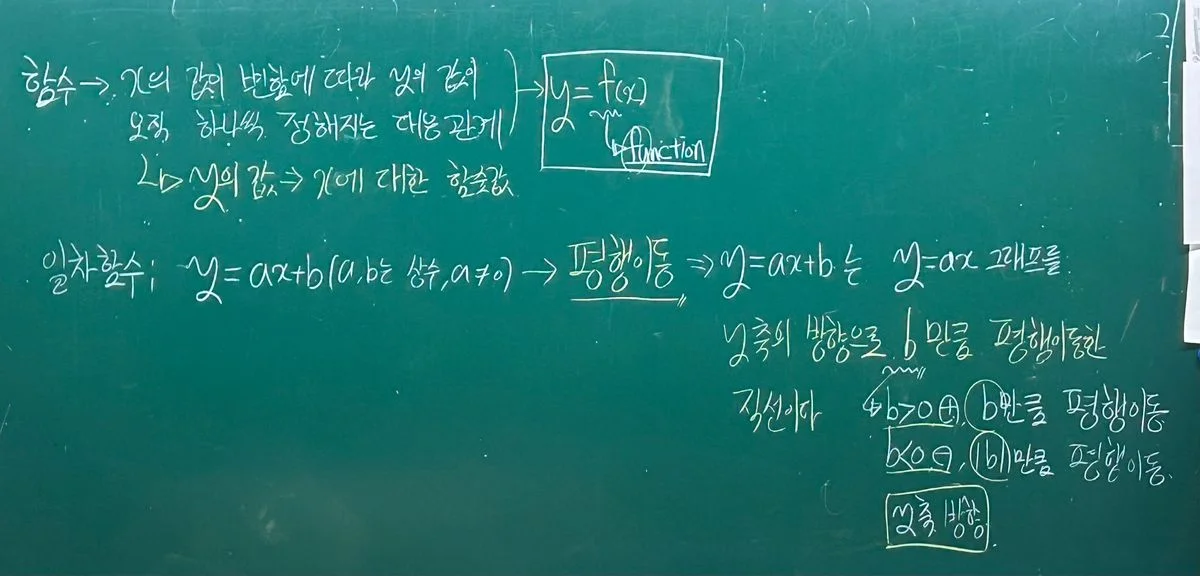 함수→ x의 값이 변함에 따라 y의 값이
오직 하나씩 정해지는 대응관계
→ y=f(x)
function
↳ y의 값→ x에 대한 함숫값
일차함수; y=ax+b(a, b는 상수, a≠0) → 평행이동 ⇒ y=ax+b는 y=ax 그래프를
y축의 방향으로 b만큼 평행이동한
직선이다 b>0 ⊕, b만큼 평행이동
b<0 ⊖, |b|만큼 평행이동.
y축 방향